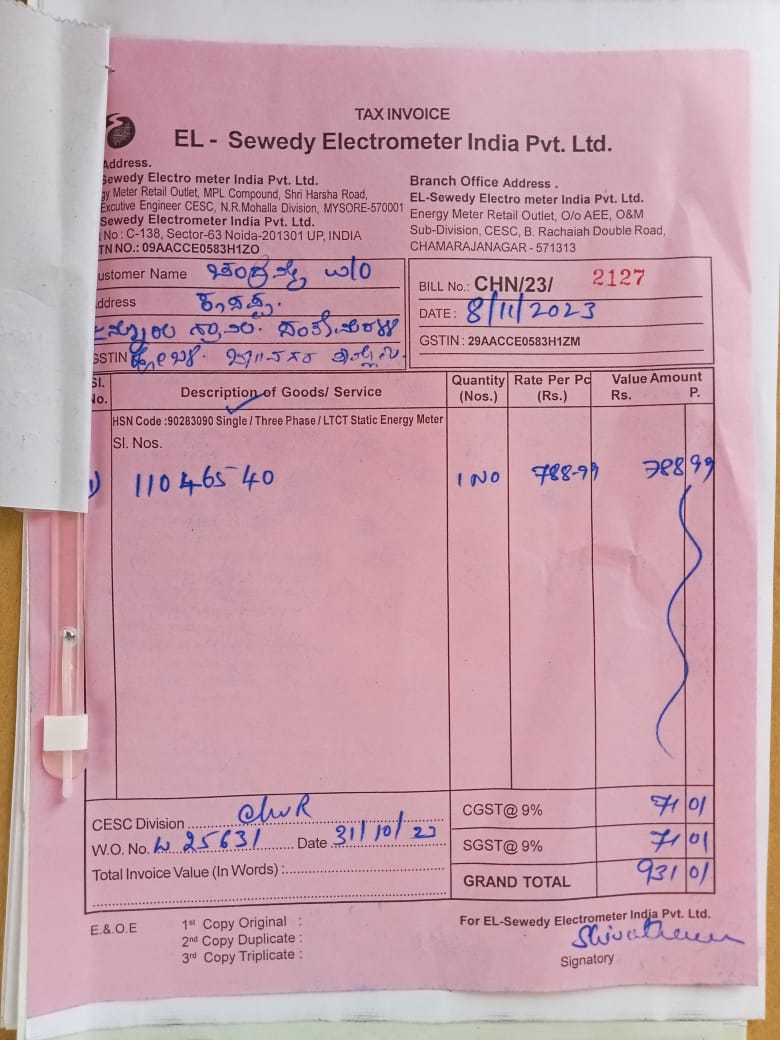 TAX INVOICE
EL - Sewedy Electrometer India Pvt. Ltd.
Address.
Sewedy Electro meter India Pvt. Ltd.
gy Meter Retail Outlet, MPL Compound, Shri Harsha Road,
Excutive Engineer CESC, N.R.Mohalla Division, MYSORE-570001
Sewedy Electrometer India Pvt. Ltd.
No : C-138, Sector-63 Noida-201301 UP, INDIA
TN NO.: 09AACCE0583H1ZO
Branch Office Address .
EL-Sewedy Electro meter India Pvt. Ltd.
Energy Meter Retail Outlet, O/o AEE, O&M
Sub-Division, CESC, B. Rachaiah Double Road,
CHAMARAJANAGAR - 571313
ustomer Name
ddress
GSTIN
BILL No.: CHN/23/ 2127
DATE : 8/11/2023
GSTIN : 29AACCE0583H1ZM
Sl. No. Description of Goods/ Service Quantity (Nos.) Rate Per Pc (Rs.) Value Amount Rs. P.
HSN Code :90283090 Single / Three Phase / LTCT Static Energy Meter
Sl. Nos.
1) 11046540 1 NO 788-99 788 99
CESC Division
W.O. No. 25631 Date 31/10/23
Total Invoice Value (In Words) :
CGST@ 9% 71 01
SGST@ 9% 71 01
GRAND TOTAL 931 01
E.& O.E
1st Copy Original :
2nd Copy Duplicate :
3rd Copy Triplicate :
For EL-Sewedy Electrometer India Pvt. Ltd.
Signatory